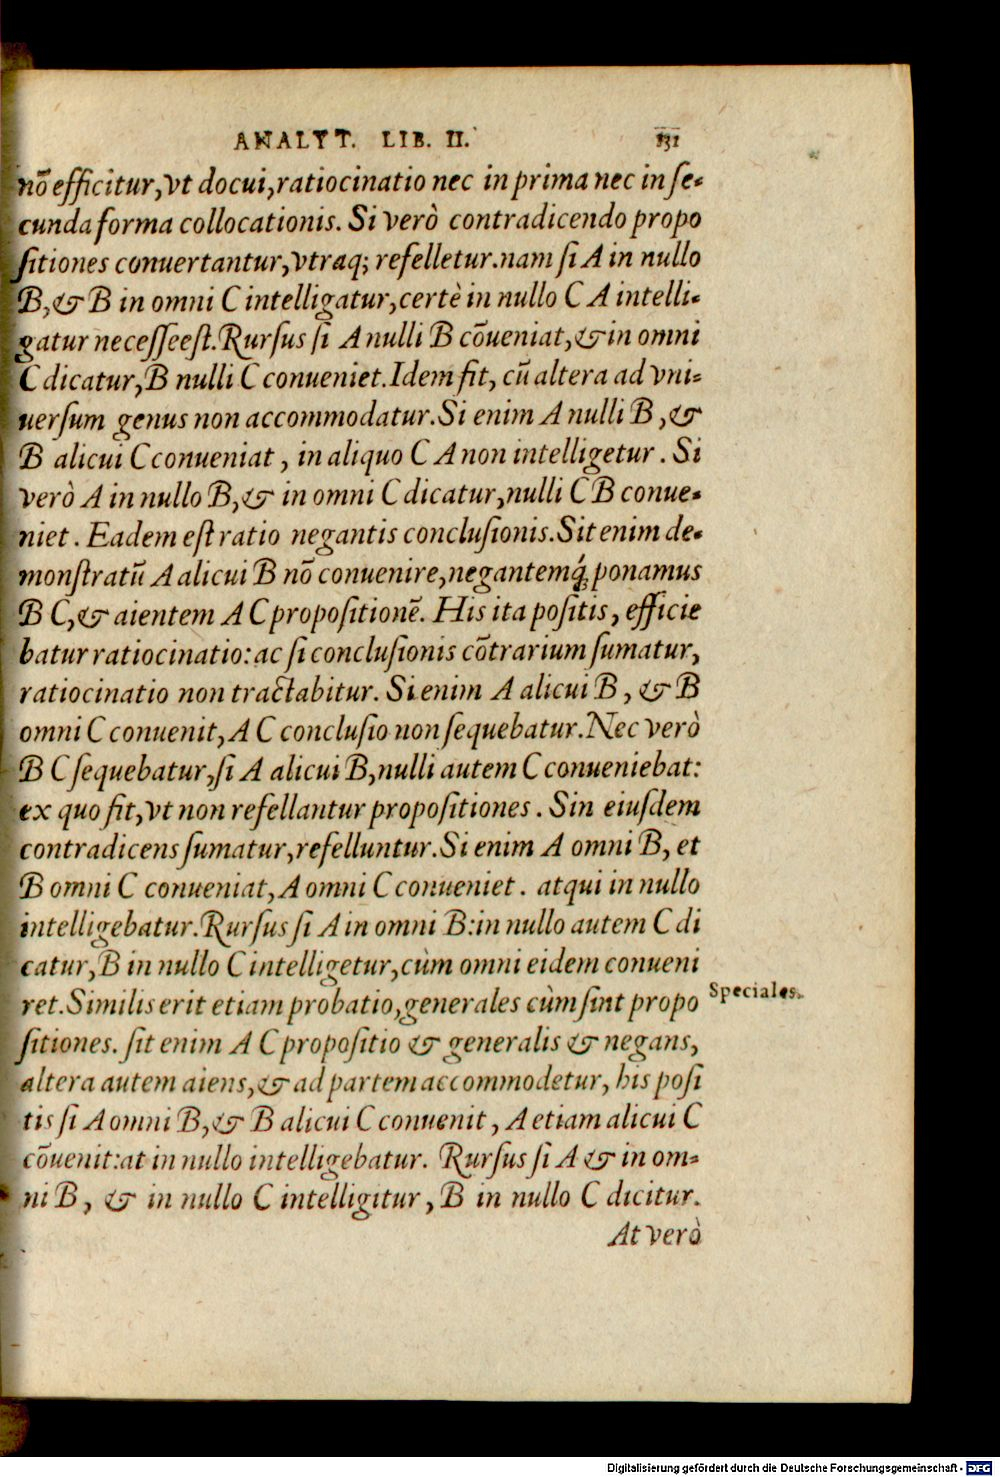 ANALYT. LIB. II. 131
nõ efficitur, vt docui, ratiocinatio nec in prima nec in se-
cunda forma collocationis. Si verò contradicendo propo
sitiones conuertantur, vtraq; refelletur. nam si A in nullo
B, & B in omni C intelligatur, certè in nullo C A intelli-
gatur necesse est. Rursus si A nulli B cõueniat, & in omni
C dicatur, B nulli C conueniet. Idem fit, cũ altera ad vni-
uersum genus non accommodatur. Si enim A nulli B, &
B alicui C conueniat, in aliquo C A non intelligetur. Si
verò A in nullo B, & in omni C dicatur, nulli C B conue-
niet. Eadem est ratio negantis conclusionis. Sit enim de-
monstratũ A alicui B nõ conuenire, negantemq́; ponamus
B C, & aientem A C propositionẽ. His ita positis, efficie
batur ratiocinatio: ac si conclusionis cõtrarium sumatur,
ratiocinatio non tractabitur. Si enim A alicui B, & B
omni C conuenit, A C conclusio non sequebatur. Nec verò
B C sequebatur, si A alicui B, nulli autem C conueniebat:
ex quo fit, vt non refellantur propositiones. Sin eiusdem
contradicens sumatur, refelluntur. Si enim A omni B, et
B omni C conueniat, A omni C conueniet. atqui in nullo
intelligebatur. Rursus si A in omni B: in nullo autem C di
catur, B in nullo C intelligetur, cùm omni eidem conueni
ret. Similis erit etiam probatio, generales cùm sint propo
Speciales.
sitiones. sit enim A C propositio & generalis & negans,
altera autem aiens, & ad partem accommodetur, his posi
tis si A omni B, & B alicui C conuenit, A etiam alicui C
cõuenit: at in nullo intelligebatur. Rursus si A & in om-
ni B, & in nullo C intelligitur, B in nullo C dicitur.
At verò
Digitalisierung gefördert durch die Deutsche Forschungsgemeinschaft - DFG